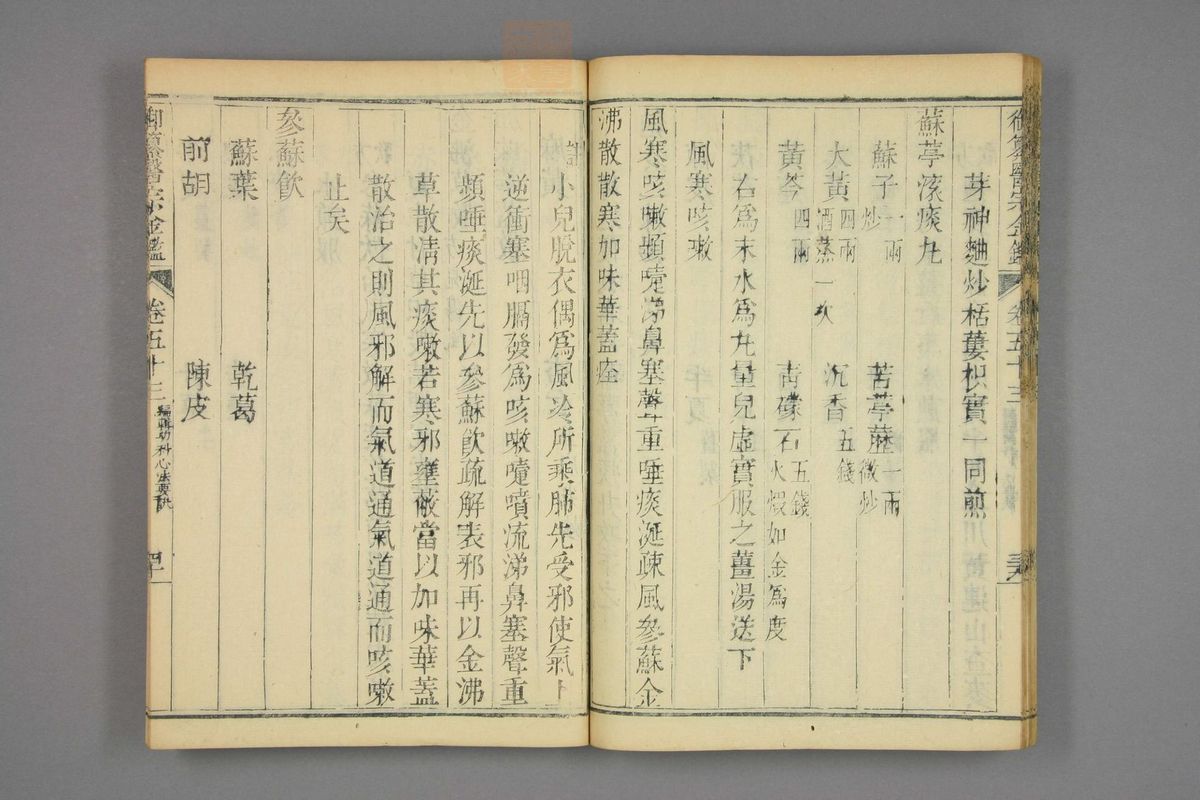 御纂醫宗金鑑 卷五十三
芽神麯炒栝蔞枳實一同煎
蘇葶滚痰丸
蘇子一兩炒 苦葶藶一兩微炒
大黃四兩酒蒸一次 沉香五錢
黃芩四兩 青礞石五錢火煅如金為度
右為末水為丸量兒虛實服之薑湯送下
風寒咳嗽
風寒咳嗽頻嚏涕鼻塞聲重唾痰涎疎風參蘇金
沸散散寒加味華蓋痊
註 小兒脫衣偶為風冷所乘肺先受邪使氣上
逆衝塞咽膈發為咳嗽嚏噴流涕鼻塞聲重
頻唾痰涎先以參蘇飲疏解表邪再以金沸
草散清其痰嗽若寒邪壅蔽當以加味華蓋
散治之則風邪解而氣道通氣道通而咳嗽
止矣
參蘇飲
蘇葉 乾葛
前胡 陳皮
御纂醫宗金鑑 卷五十三 編輯幼科心法要訣